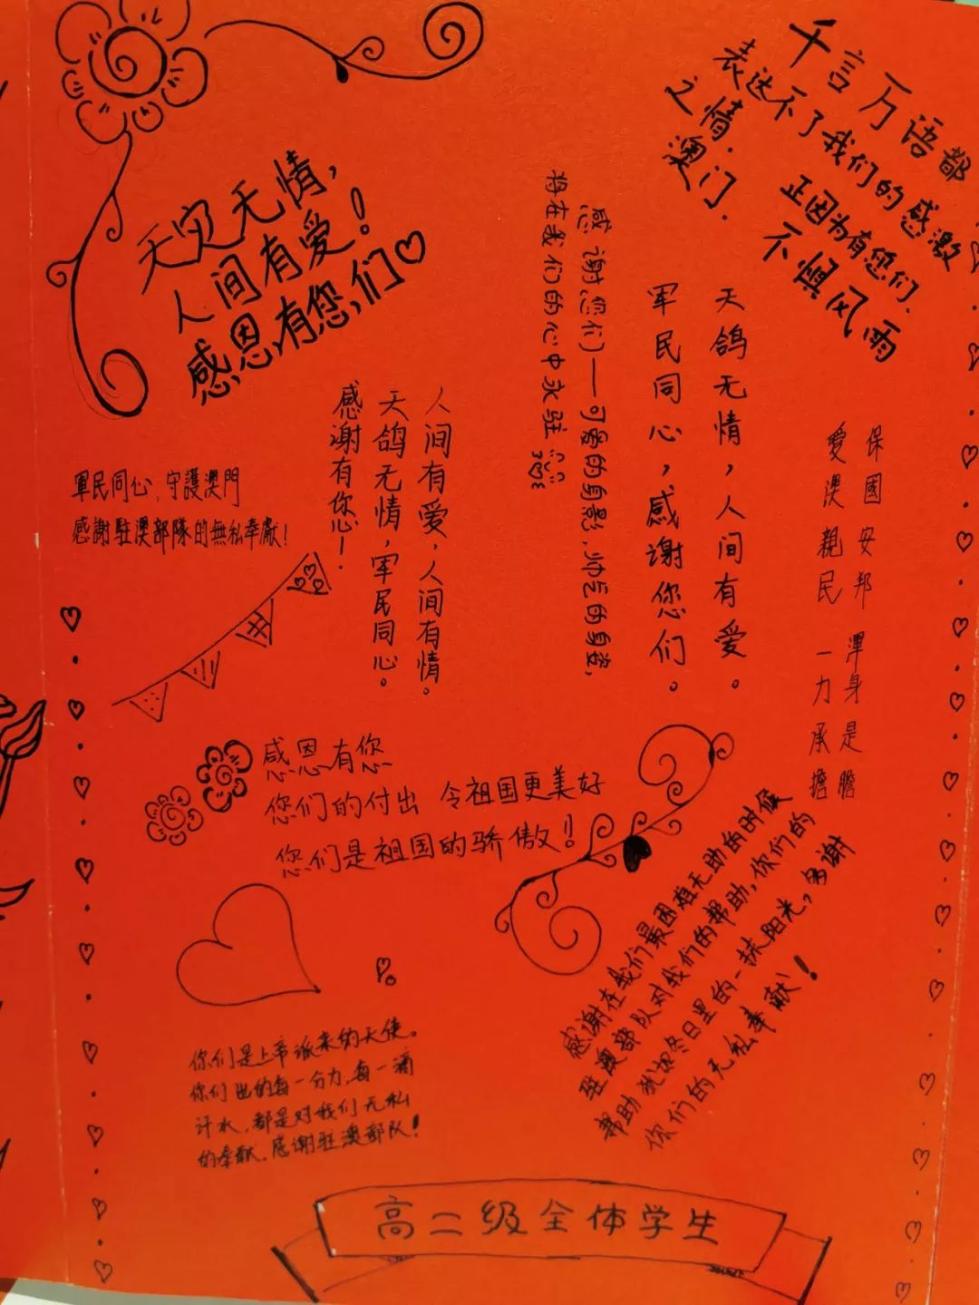 天灾无情，
人间有爱！
感恩有您们
千言万语都
表达不了我们的感激
之情．
正因为有您们．
澳门．
不惧风雨
感谢您们——可爱的身影、帅气的身姿，
将在我们的心中永驻
天鸽无情，人间有爱。
军民同心，感谢您们。
人间有爱，人间有情。
天鸽无情，军民同心。
感谢有您！
保國安邦 渾身是膽
愛澳親民 一力承擔
軍民同心，守護澳門
感謝駐澳部隊的無私奉獻！
感恩有您
您们的付出 令祖国更美好
您们是祖国的骄傲！
感谢在我们最困难无助的时候
驻澳部队对我们的帮助，你们的
帮助犹如冬日里的一抹阳光，多谢
你们的无私奉献！
你们是上帝派来的天使。
你们出的每一分力，每一滴
汗水，都是对我们无私
的奉献。感谢驻澳部队！
高二级全体学生